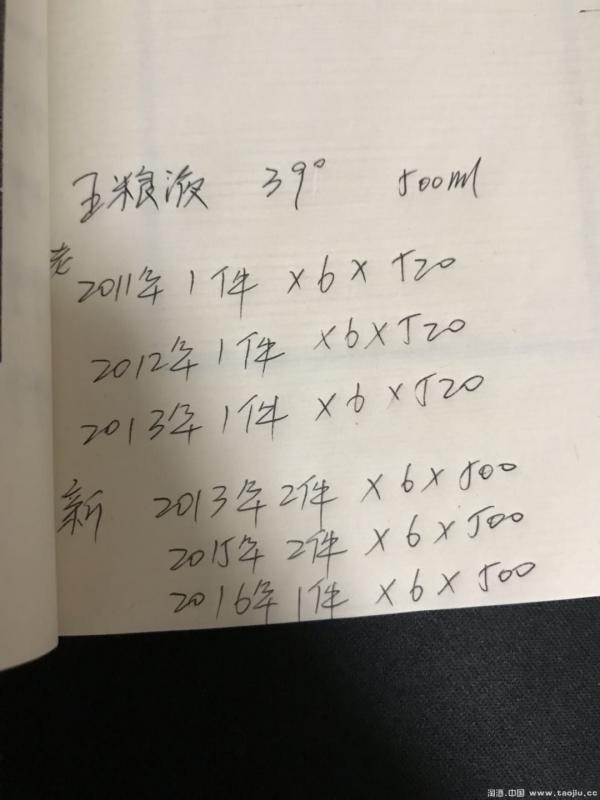 五粮液 39° 500ml
老 2011年 1件 ×6× 520
2012年 1件 ×6×520
2013年 1件 ×6×520
新 2013年 2件 ×6×500
2015年 2件 ×6×500
2016年 1件 ×6×500
淘酒.中国 www.taojiu.cc